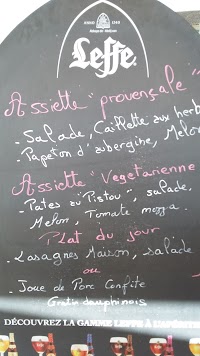 Leffe
Assiette "provençale"
- Salade, Caillette aux herb
- Papeton d'aubergine, Melon
Assiette "Vegetarienne
- Pates au "Pistou", salade,
Melon, Tomate mozza
Plat du jour
- Lasagnes Maison, salade
ou
- Joue de Porc Confite
Gratin dauphinois
DÉCOUVREZ LA GAMME LEFFE À L'APÉRITI